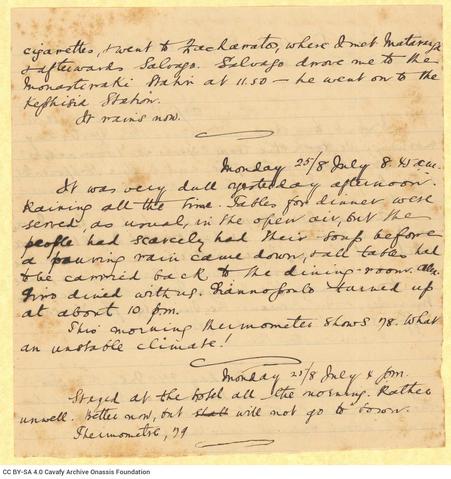 cigarettes, & went to Zacharatos, where I met Mataranga
& afterwards Salvago. Salvago drove me to the
Monasteraki Statn at 11.50 — he went on to the
Kephisia Station.
It rains now.
Monday 25/8 July 8.45 a.m.
It was very dull yesterday afternoon.
Raining all the time. Tables for dinner were
served, as usual, in the open air, but the
people had scarcely had their soup before
a pouring rain came down, & all tables had
to be carried back to the dining-room.
dined with us. Giannopoulo turned up
at about 10 p.m.
This morning thermometer shows 78. What
an unstable climate!
Monday 25/8 July 4 p.m.
Stayed at the hotel all the morning. Rather
unwell. Better now, but shall will not go to town.
Thermometre, 79
CC BY-SA 4.0 Cavafy Archive Onassis Foundation